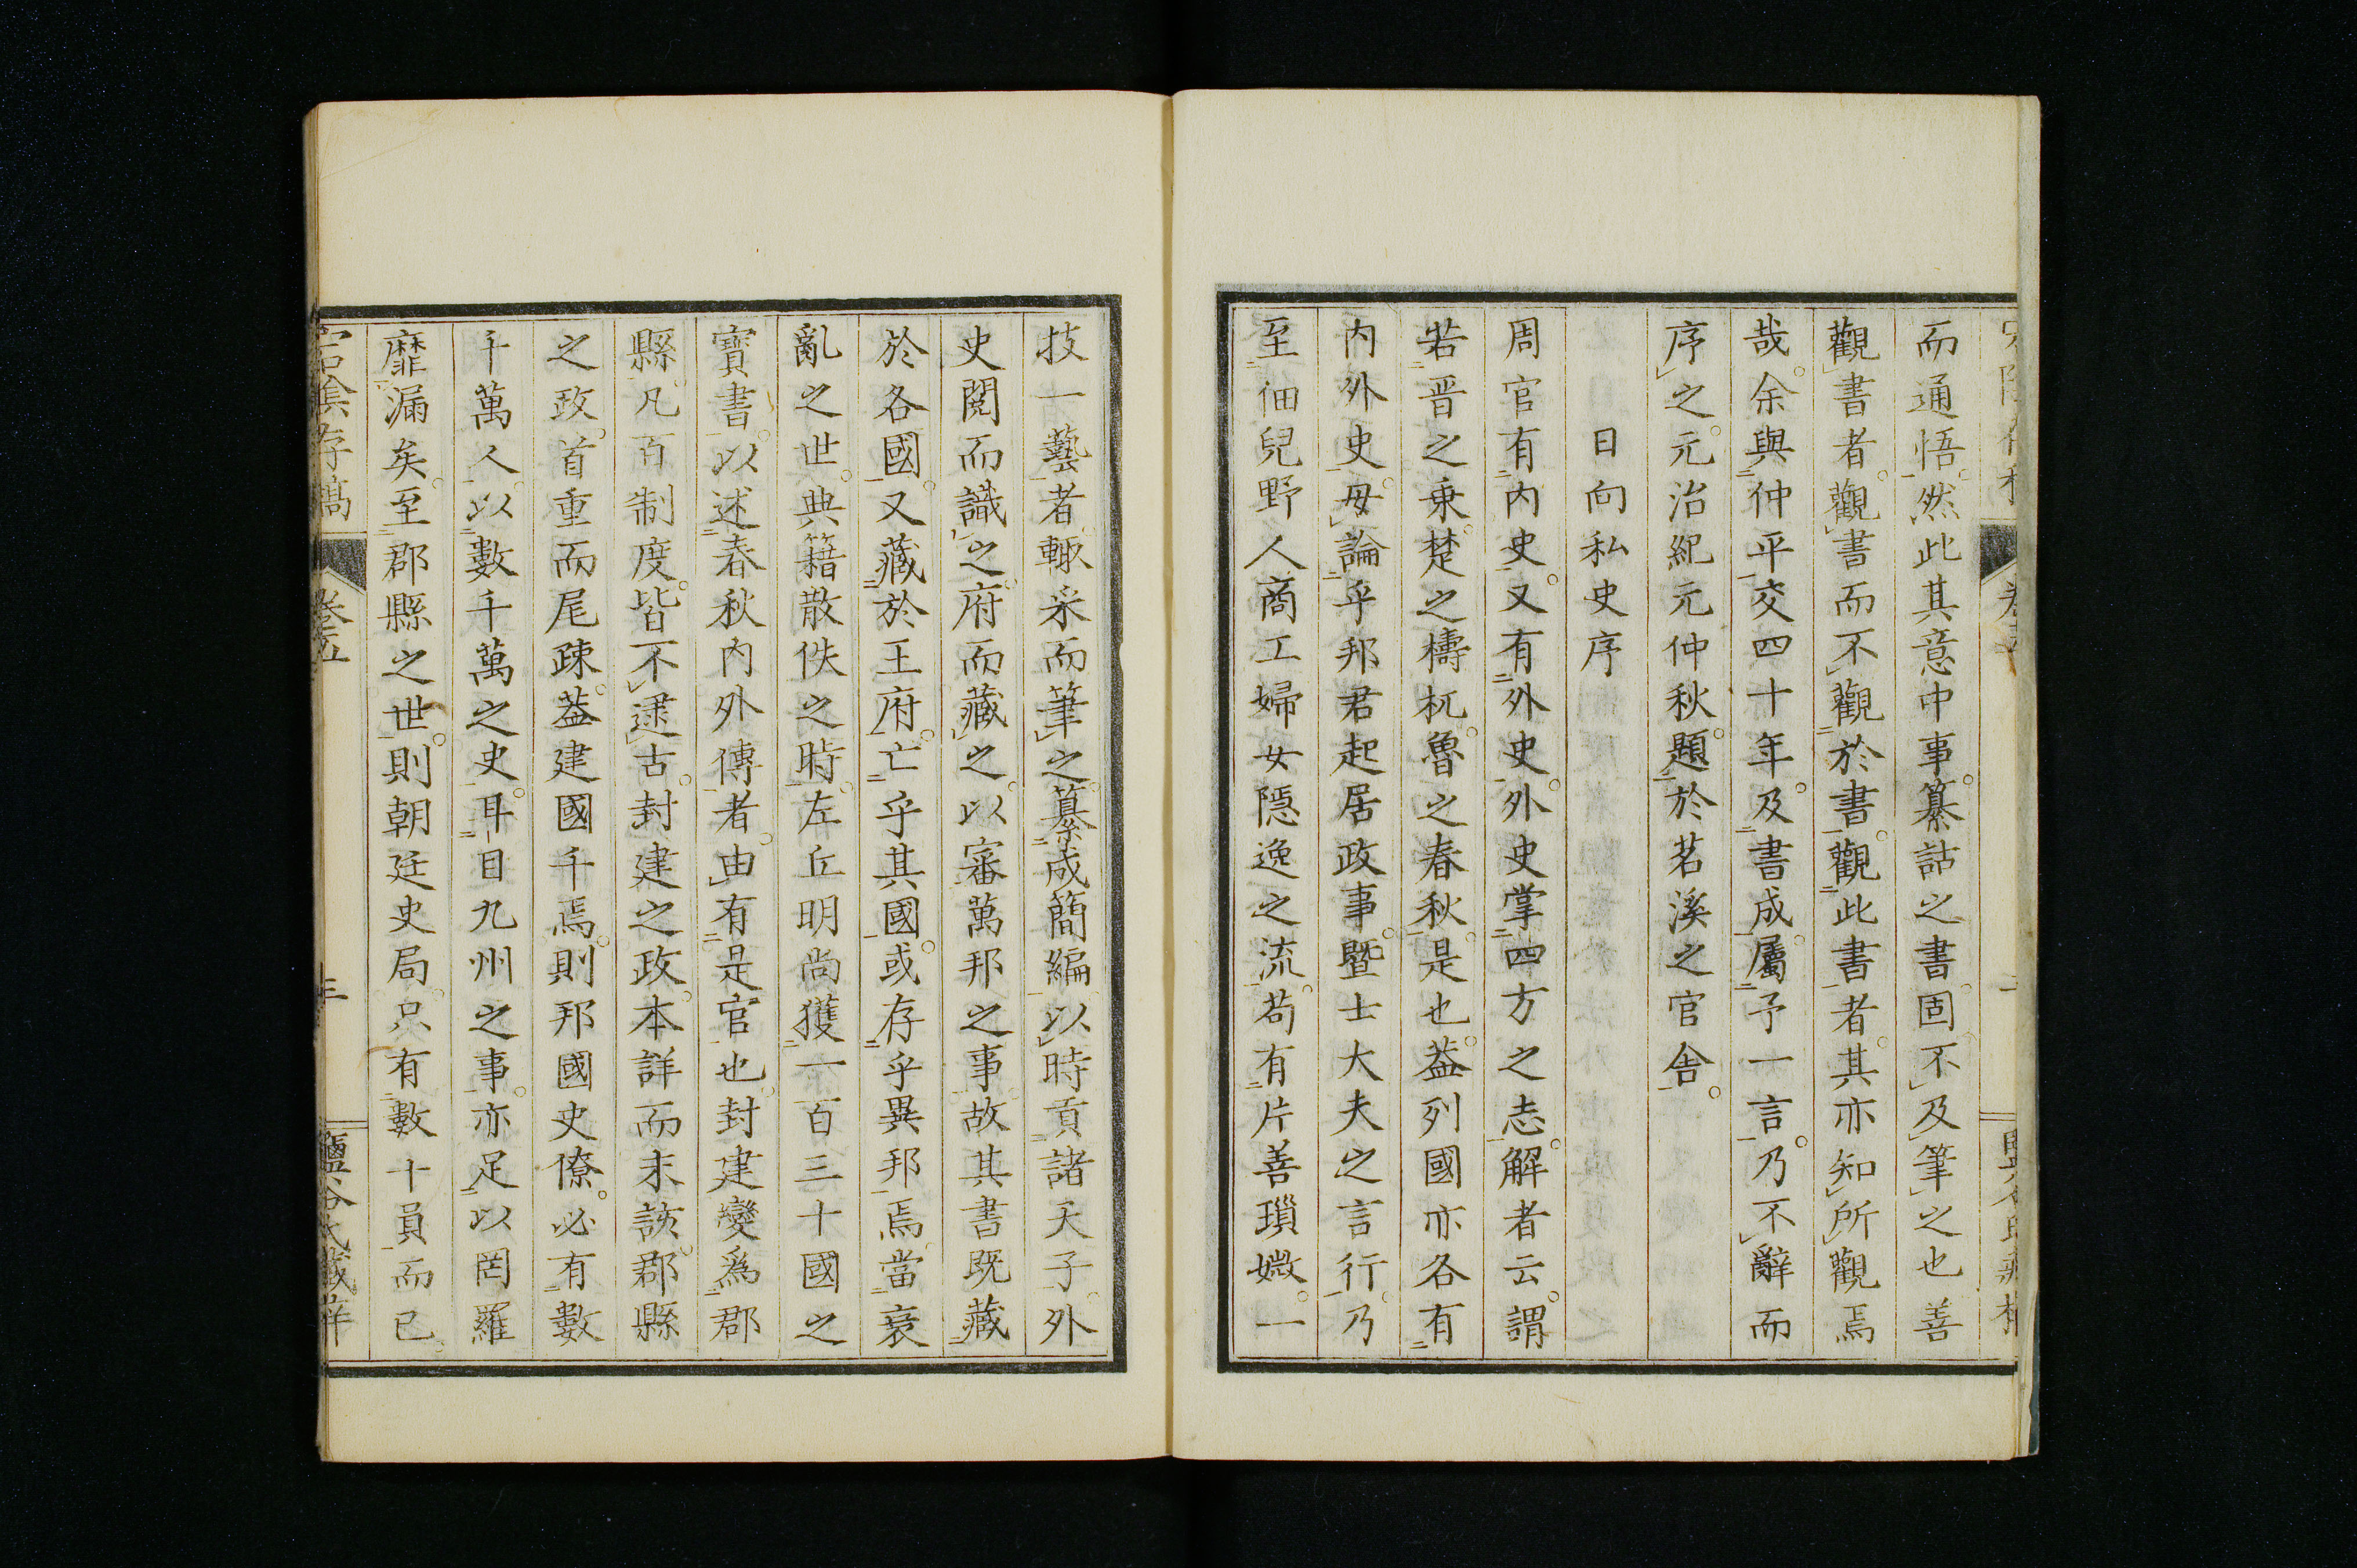 而通悟。然此其意中事。纂詁之書。固不及筆之也善
觀書者。觀書而不觀於書。觀此書者。其亦知所觀焉
哉。余與仲平交四十年。及書成。屬予一言。乃不辭而
序之。元治紀元仲秋。題於茗溪之官舍。
日向私史序
周官有內史。又有外史。外史掌四方之志。解者云。謂
若晋之乗。楚之檮杌。魯之春秋。是也。葢列國亦各有
內外史。毋論乎邦君起居政事。曁士大夫之言行。乃
至佃兒野人商工婦女隱逸之流。苟有片善瑣媺。一
技一藝者。輙采而筆之。纂成簡編。以時貢諸天子。外
史閱而識之。府而藏之。以審萬邦之事。故其書既藏
於各國。又藏於王府。亡乎其國。或存乎異邦焉。當衰
亂之世。典籍散佚之時。左丘明尙獲一百三十國之
寶書。以述春秋內外傳者。由有是官也。封建變爲郡
縣。凡百制度。皆不逮古。封建之政。本詳而末該。郡縣
之政。首重而尾疎。葢建國千焉。則邦國史僚。必有數
千萬人。以數千萬之史。耳目九州之事。亦足以罔羅
靡漏矣。至郡縣之世。則朝廷史局。只有數十員而已。
宕陰存稿
卷五
三
鹽谷氏藏梓